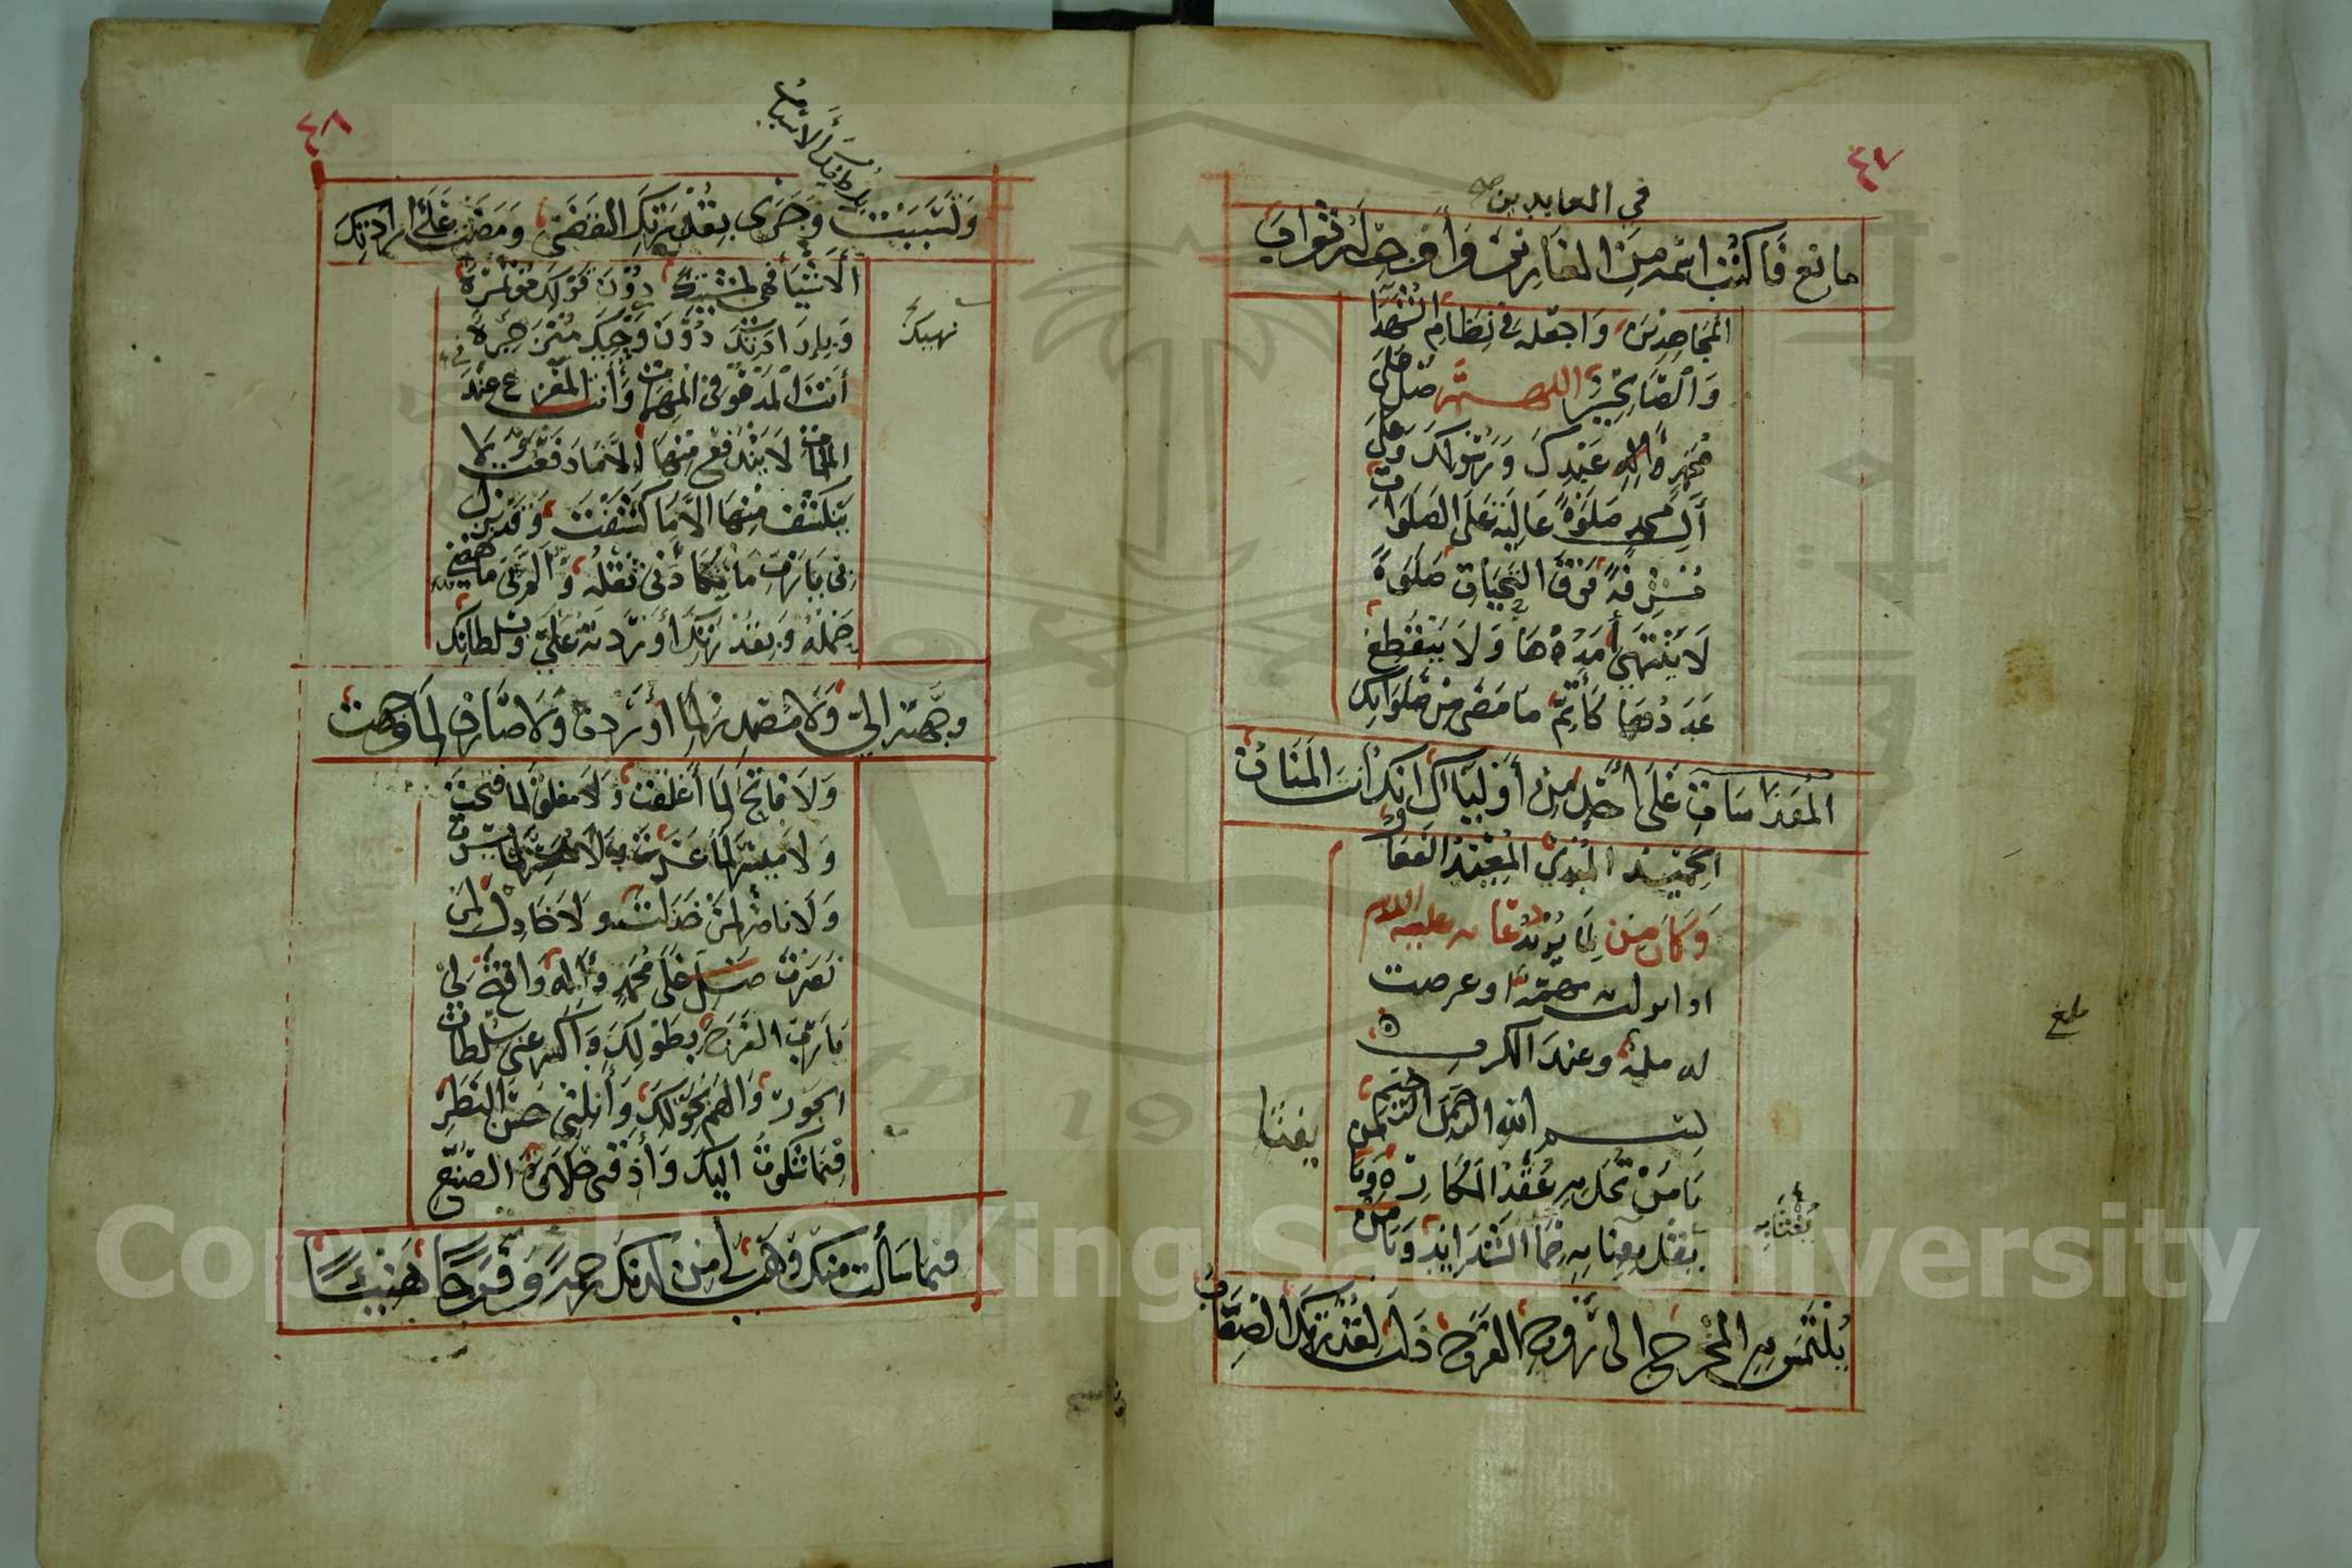 ٤٧
في العابدين
مانع فاكتب اسمه من الغازين وأوجب له ثواب
المجاهدين واجعله في نظام الشهدا
والصالحين اللهم صل على
محمد وآله عبدك ورسولك وعلى
آل محمد صلوة عالية على الصلوات
مشرفة فوق التحيات صلوة
لا ينتهي أمدها ولا ينقطع
عددها كأتم ما مضى من صلواتك
على أحد من أوليائك انك أنت المنان
الحميد المبدئ المعيد الفعال
وكان من دعائه عليه السلام
له ملمة وعند الكرب
بسم الله الرحمن الرحيم
يا من تحل به عقد المكاره ويا من
يفثأ به حد الشدائد ويا من
يلتمس منه المخرج الى روح الفرج ذلت لقدرتك الصعاب
يفثأ
بلغ
٤٨
بلطفك الأسباب
وتسببت وجرى بقدرتك القضى ومضت على ارادتك
الأشيا فهي بمشيتك دون قولك مؤتمرة
وبإرادتك دون نهيك منزجرة
أنت المدعو في المهمات وأنت المفزع عند
الملمات لا يندفع منها إلا ما دفعت ولا
ينكشف منها الا ما كشفت وقد نزل
بي يا رب ما تكأدني ثقله وألم بي ما بهضني
حمله وبقدرتك أوردته علي وبسلطانك
وجهته إلي ولا مصدر لما أوردت ولا صارف لما وجهت
ولا فاتح لما أغلقت ولا مغلق لما فتحت
ولا ميسر لما عسرت ولا معسر لما يسرت
ولا ناصر لمن خذلت ولا خاذل لمن
نصرت صل على محمد وآله وافتح لي
يا رب الفرج بطولك واكسر عني سلطان
الهم بحولك وأنلني حسن النظر
فيما شكوت اليك وأذقني حلاوة الصنع
فيما سألت منك وهب لي من لدنك رحمة وفرجا هنيئا
Copyright © King Saud University